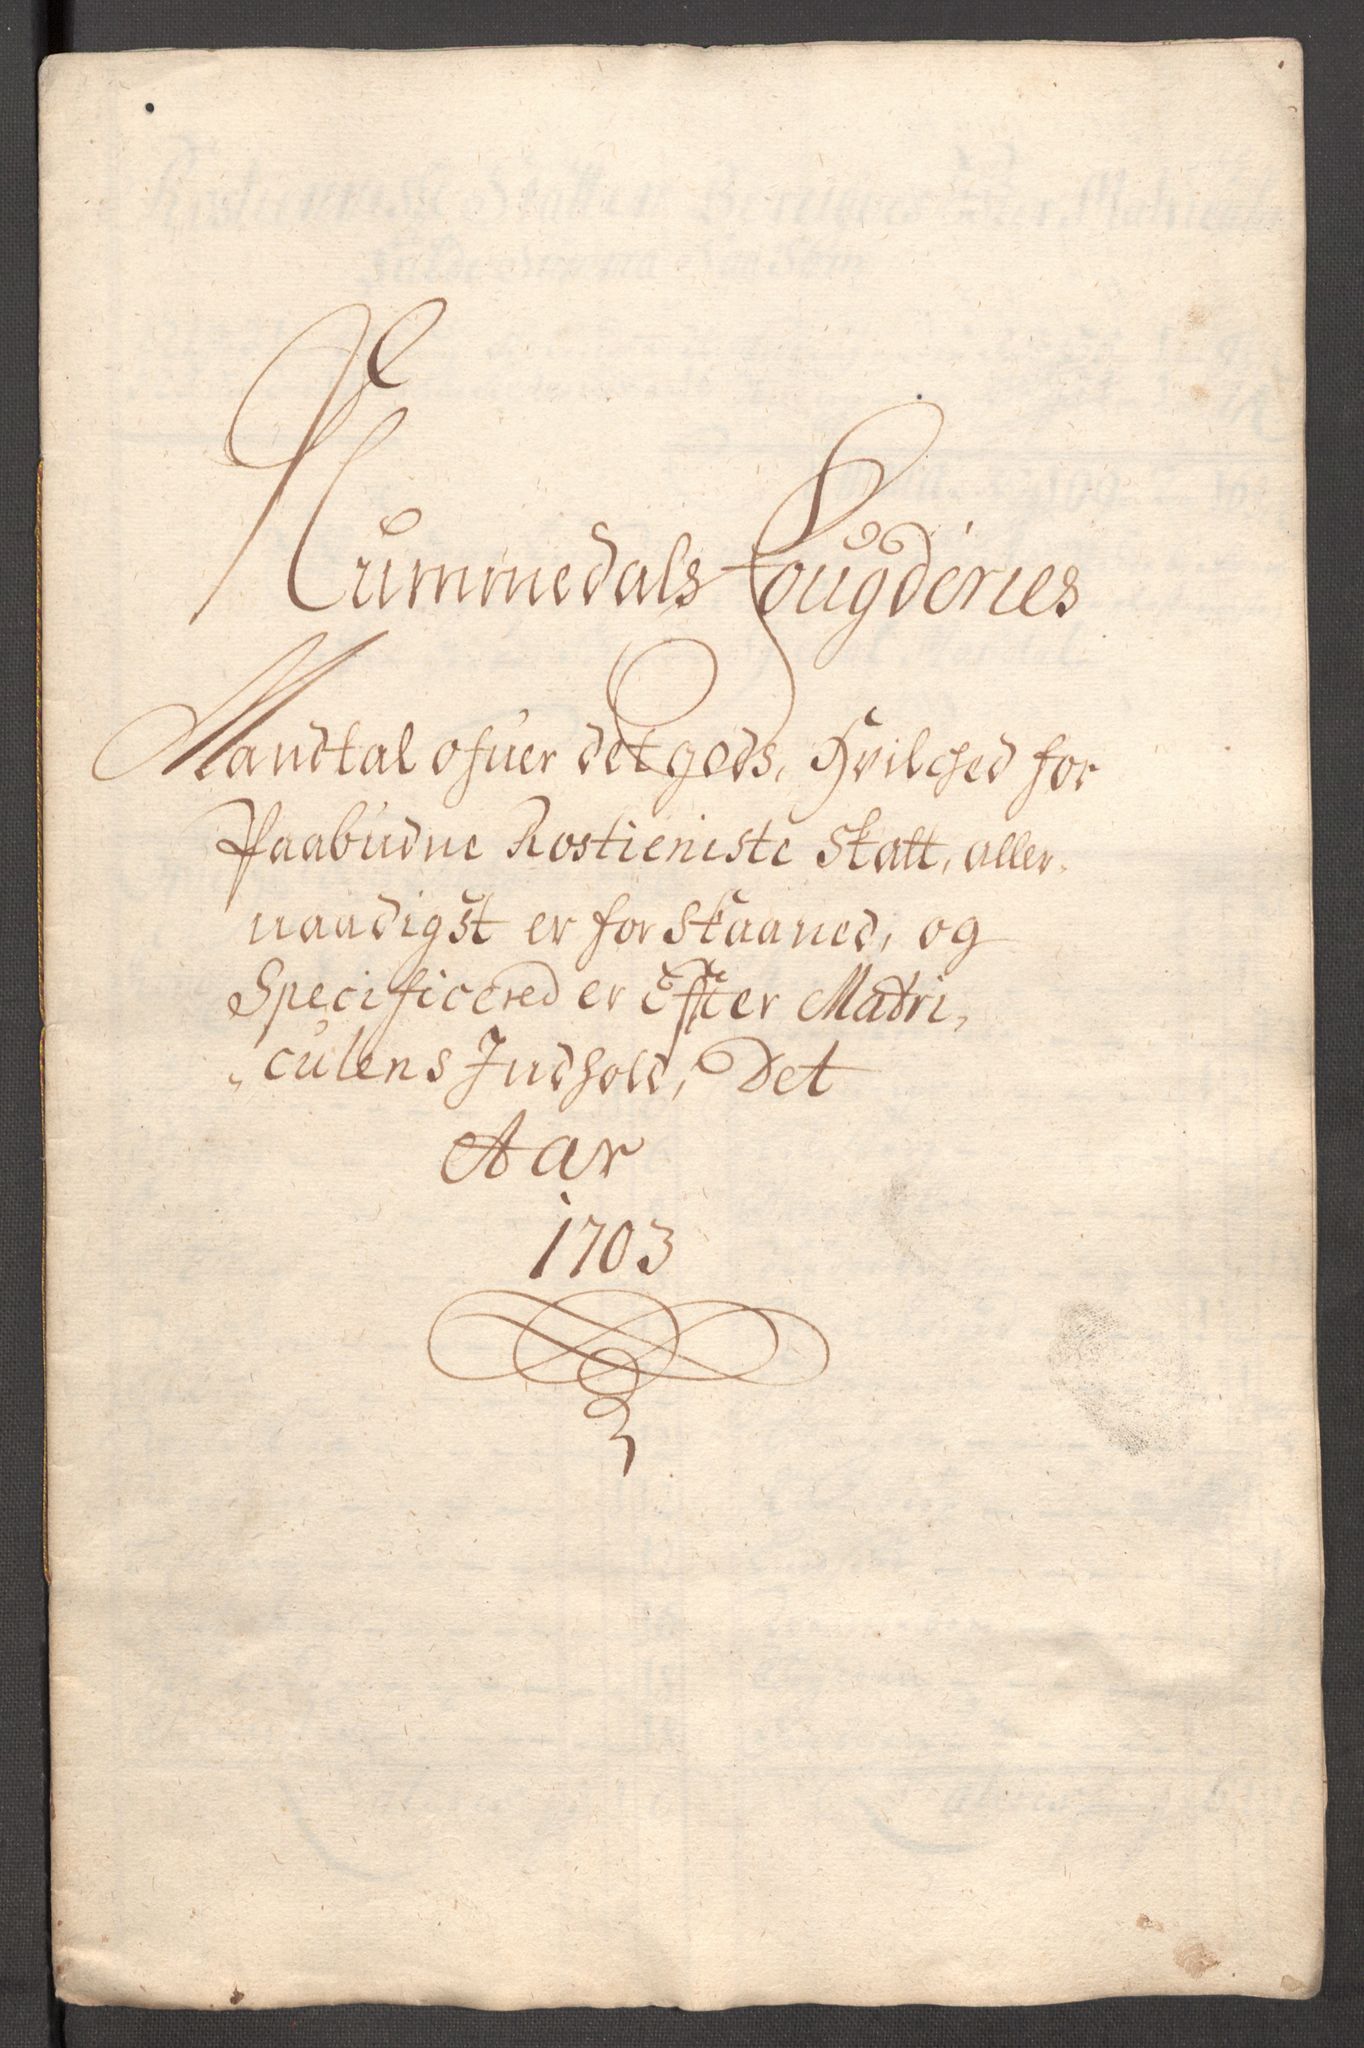 Nummedals Fougderies
Mandtal ofuer det gods, Hvilched for
Paabudne Rostieniste Skatt, aller-
naadigst er for Skaaned, og
Specificered er Efter Matri,
„culens Indhold, Det
Aar
1703